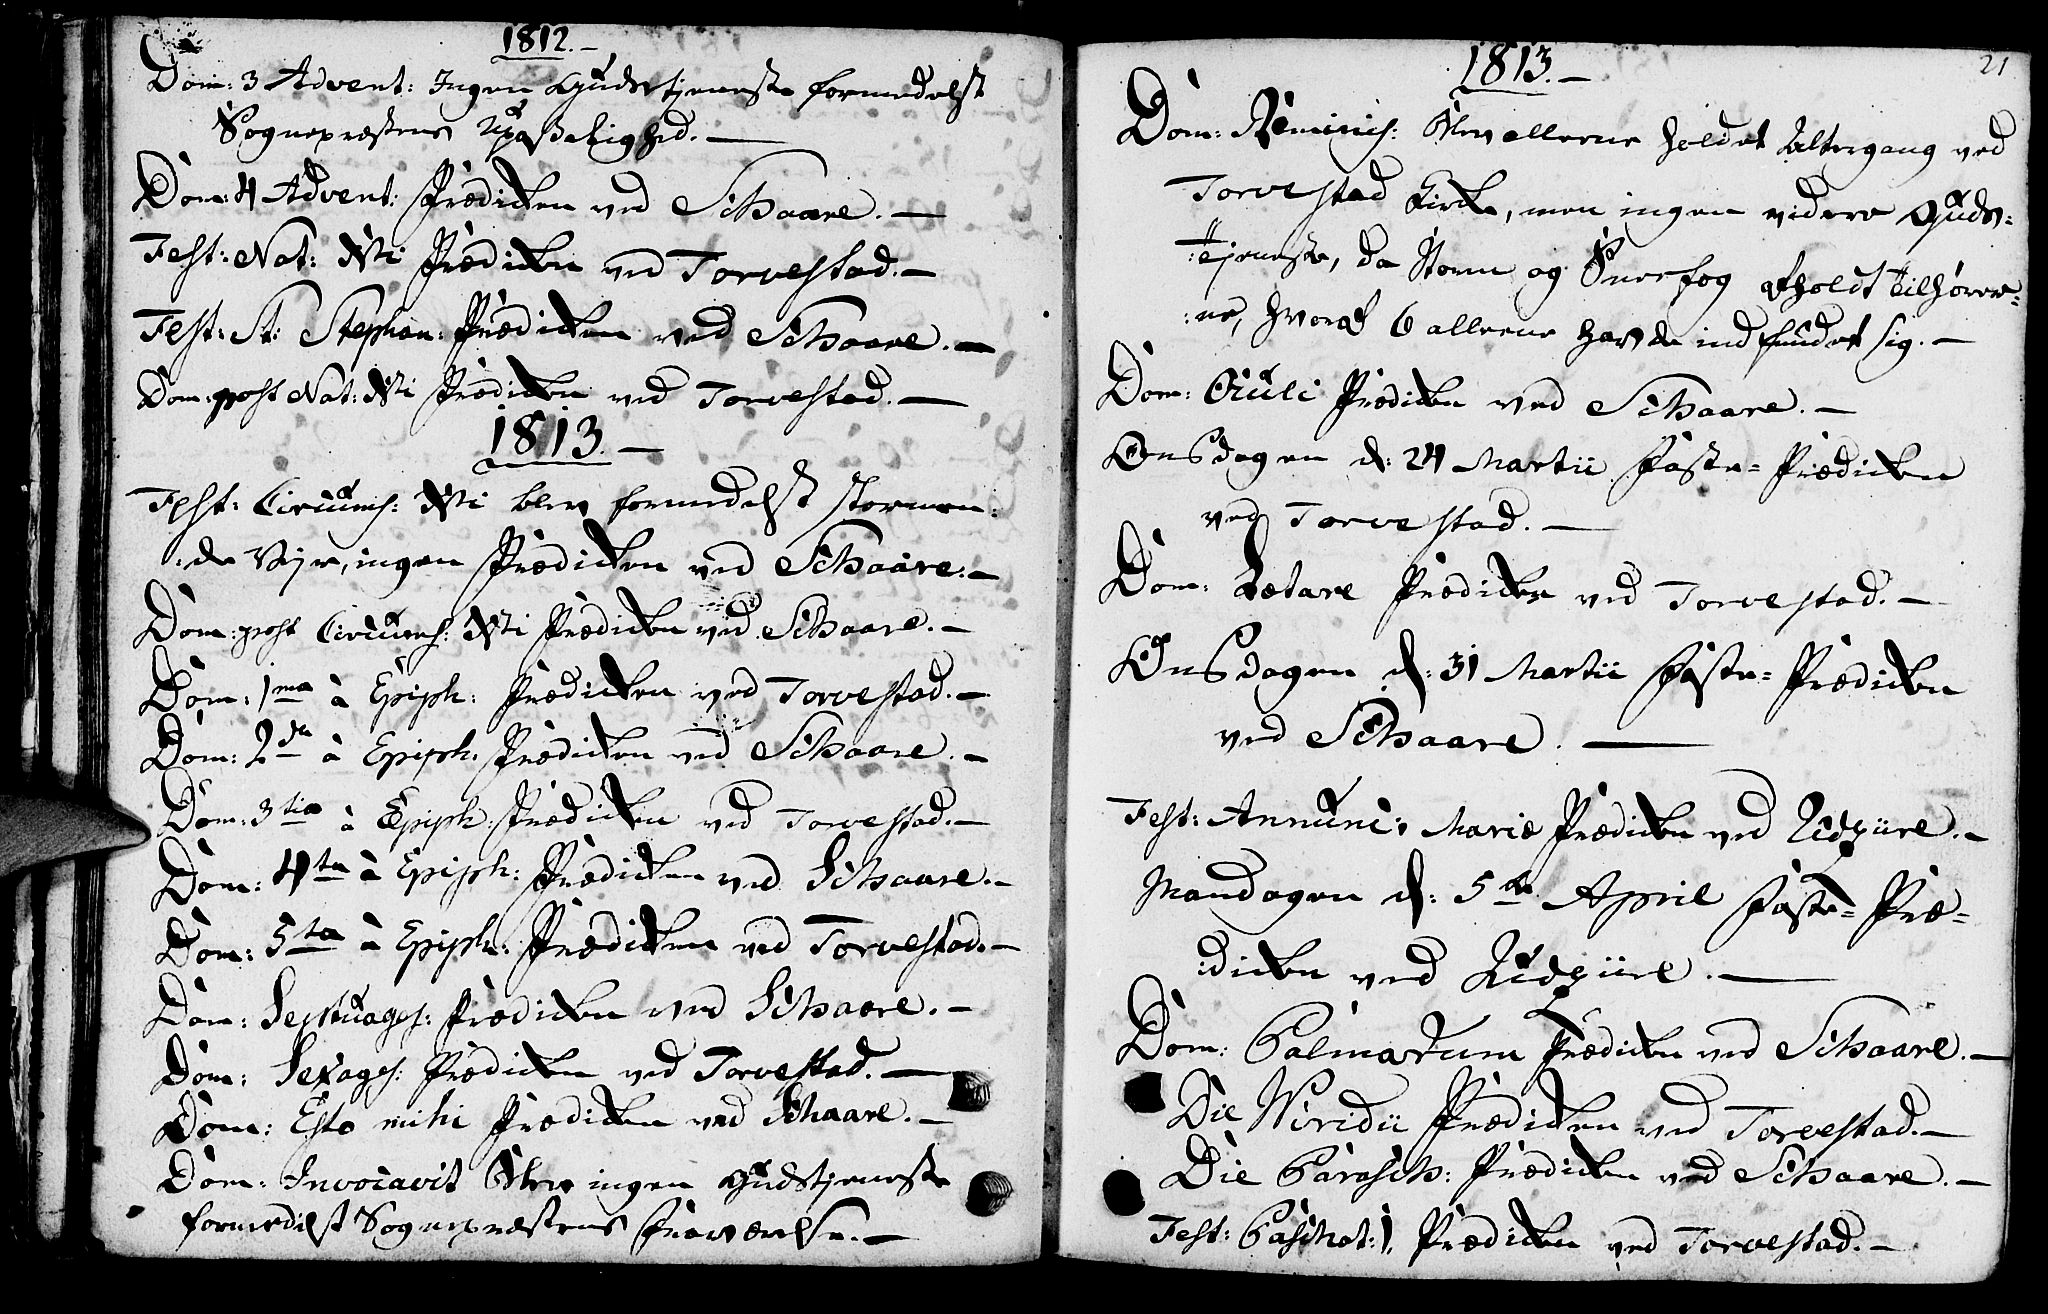 1812.-
Dom: 3 Advent: Ingen Gudstjeneste formedelst
Sognepræstens Upasselighed.-
Dom: 4 Advent: Prædicken ved Schaare.-
Fest: Nat: Xsti Prædicken ved Torvestad.-
Fest: St: Stephan: Prædicken ved Schaare.-
Dom: post Nat: Xsti Prædicken ved Torvestad.-
1813.-
Fest: Circums: Xsti blev formedelst stormen:
:de Vejr, ingen Prædicken ved Schaare.-
Dom: post Circums: Xsti Prædicken ved Schaare.-
Dom: 1ma à Epiph: Prædicken ved Torvestad.-
Dom: 2da à Epiph: Prædicken ved Schaare.-
Dom: 3tia à Epiph: Prædicken ved Torvestad.-
Dom: 4ta à Epiph: Prædicken ved Schaare.-
Dom: 5ta à Epiph: Prædicken ved Torvestad.-
Dom: Septuages: Prædicken ved Schaare.-
Dom: Sexages: Prædicken ved Torvestad.-
Dom: Esto mihi Prædicken ved Schaare.-
Dom: Invocavit blev ingen Gudstjeneste
formedelst Sognepræstens Fraværelse.-
21
1813.-
Dom: Reminis: blev alleene holdet Altergang ved
Torvestad Kirke, men ingen videre Guds:
:tjeneste, da Storm og Sneefog afholdt Tilhører:
:ne, hvoraf 6 alleene havde indfundet sig.-
Dom: Oculi Prædicken ved Schaare.-
Onsdagen d: 24 Martii Faste=Prædicken
ved Torvestad.-
Dom: Lætare Prædicken ved Torvestad.-
Onsdagen d: 31 Martii Faste=Prædicken
ved Schaare.-
Fest: Annunc: Mariæ Prædicken ved Udzüre.-
Mandagen d: 5te April Faste=Præ=
:dicken ved Udzüre.-
Dom: Palmarum Prædicken ved Schaare.-
Die Viridii Prædicken ved Torvestad.-
Die Parasch: Prædicken ved Schaare.-
Fest: Paschat: 1, Prædicken ved Torvestad.-